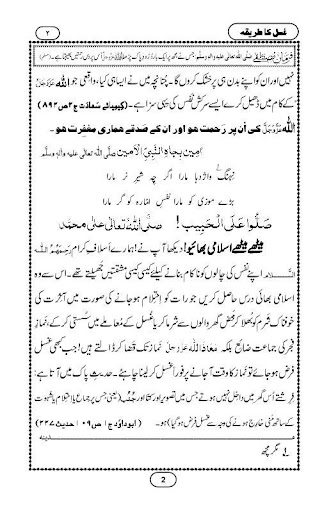 غسل کا طریقہ
۲
فرمانِ مصطفٰے صلی اللہ تعالیٰ علیہ والہ وسلم جس نے مجھ پر ایک بار دُرُود پاک پڑھا اللہ تعالیٰ اُس پر دس رحمتیں بھیجتا ہے۔ (مسلم)
نہیں اور ان کو اپنے بدن ہی پر خشک کروں گا۔ چُنانچِہ میں نے ایسا ہی کیا، واقِعی جو اللہ عزوجل
کے کام میں ڈھیل کرے ایسے سرکش نفس کی یِہی سزا ہے۔ (کیمیائے سعادت ج ۲ ص ۸۹۳)
اللہ عزوجل کی اُن پر رَحمت ہو اور ان کے صَدقے ہماری مغفِرت ہو۔
اٰمین بجاہِ النَّبِیِّ الْاَمین صلی اللہ تعالیٰ علیہ والہ وسلَّم
نَہَنگ واژدہا مارا اگرچِہ شیر نر مارا
بڑے موذی کو مارا نفسِ امّارہ کو گر مارا
صَلُّوا عَلَی الْحَبِیب! صلَّی اللہُ تعالٰی علٰی محمَّد
میٹھے میٹھے اسلامی بھائیو! دیکھا آپ نے! ہمارے اَسلافِ کرام رحمہم اللہ
السلام اپنے نفس کی چالوں کو ناکام بنانے کیلئے کیسی کیسی مشقتیں جھیلتے تھے۔ اس سے وہ
اسلامی بھائی درس حاصِل کریں جو رات کو اِحتِلام ہو جانے کی صورت میں آخِرت کی
خوفناک شرم کو بھلا کر مَحض گھر والوں سے شرما کر یا غسل کے مُعاملے میں سُستی کر کے، نَماز
فجر کی جماعت ضائع بلکہ مَعاذَ اللہ عزوجل نَماز تک قضا کر ڈالتے ہیں! جب بھی غسل
فرض ہو جائے تو نَماز کا وقت آجانے پر فوراً غسل کر لینا چاہئے۔ حدیثِ پاک میں آتا ہے:
فِرِشتے اُس گھر میں داخِل نہیں ہوتے جس میں تصویر اور کتا اور جُنُب (یعنی جس پر جِماع یا اِحتِلام یا شَہوت
کے ساتھ مَنی خارِج ہونے کی وجہ سے غسل فرض ہو گیا) ہو۔ (ابوداوٗد ج ا ص ۱۰۹ حدیث ۲۲۷)
مدینہ
۱ مگر مچھ
2